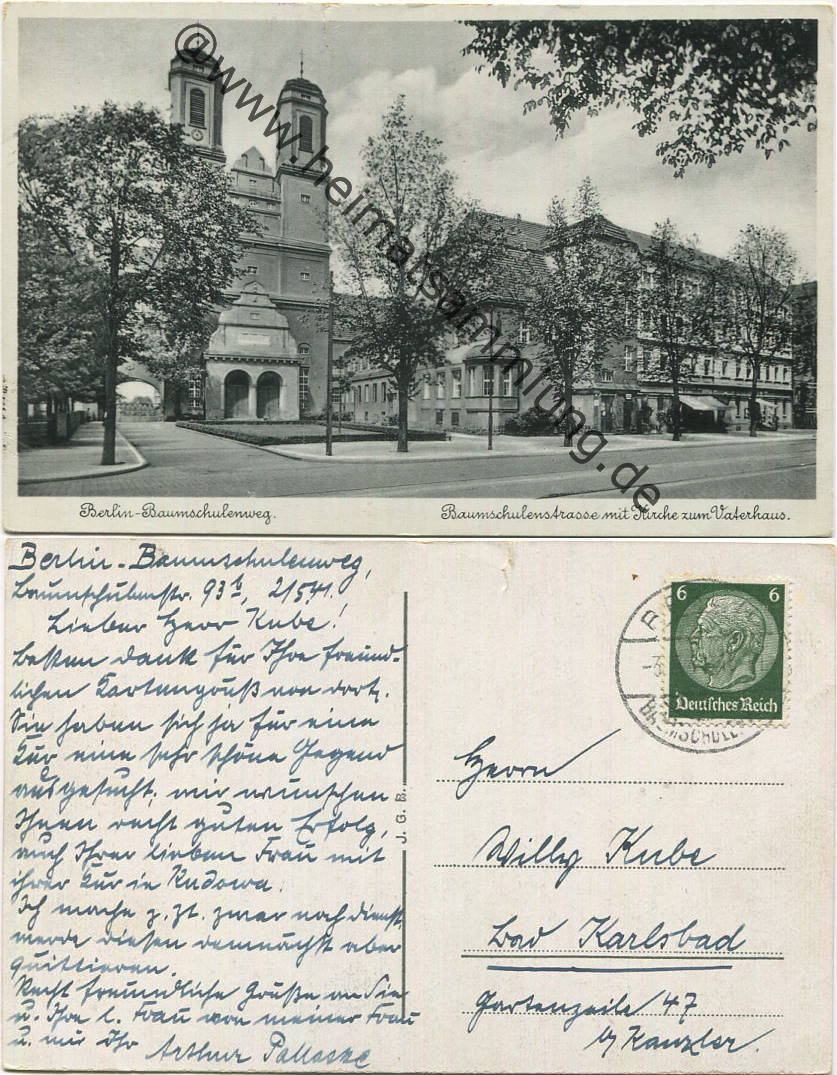 @www.heimatsammlung.de
Berlin-Baumschulenweg.
Baumschulenstrasse mit Kirche zum Vaterhaus.
Berlin-Baumschulenweg,
Baumschulenstr. 93b, 2/5 41.
Lieber Herr Kube!
Besten Dank für Ihre freund-
lichen Kartengruß von dort.
Sie haben sich ja für eine
Kur eine sehr schöne Gegend
ausgesucht, wir wünschen
Ihnen recht guten Erfolg,
auch Ihrer lieben Frau mit
ihrer Kur in Kudowa.
Ich mache z. Zt. zwar noch Dienst,
werde diesen demnächst aber
quittieren.
Recht freundliche Grüße an Sie
u. Ihre l. Frau von meiner Frau
u. mir Ihr
Arthur
J. G. B.
6 6
Deutsches Reich
Herrn
Willy Kube
Bad Karlsbad
Gartenzeile 47
by Kanzler.